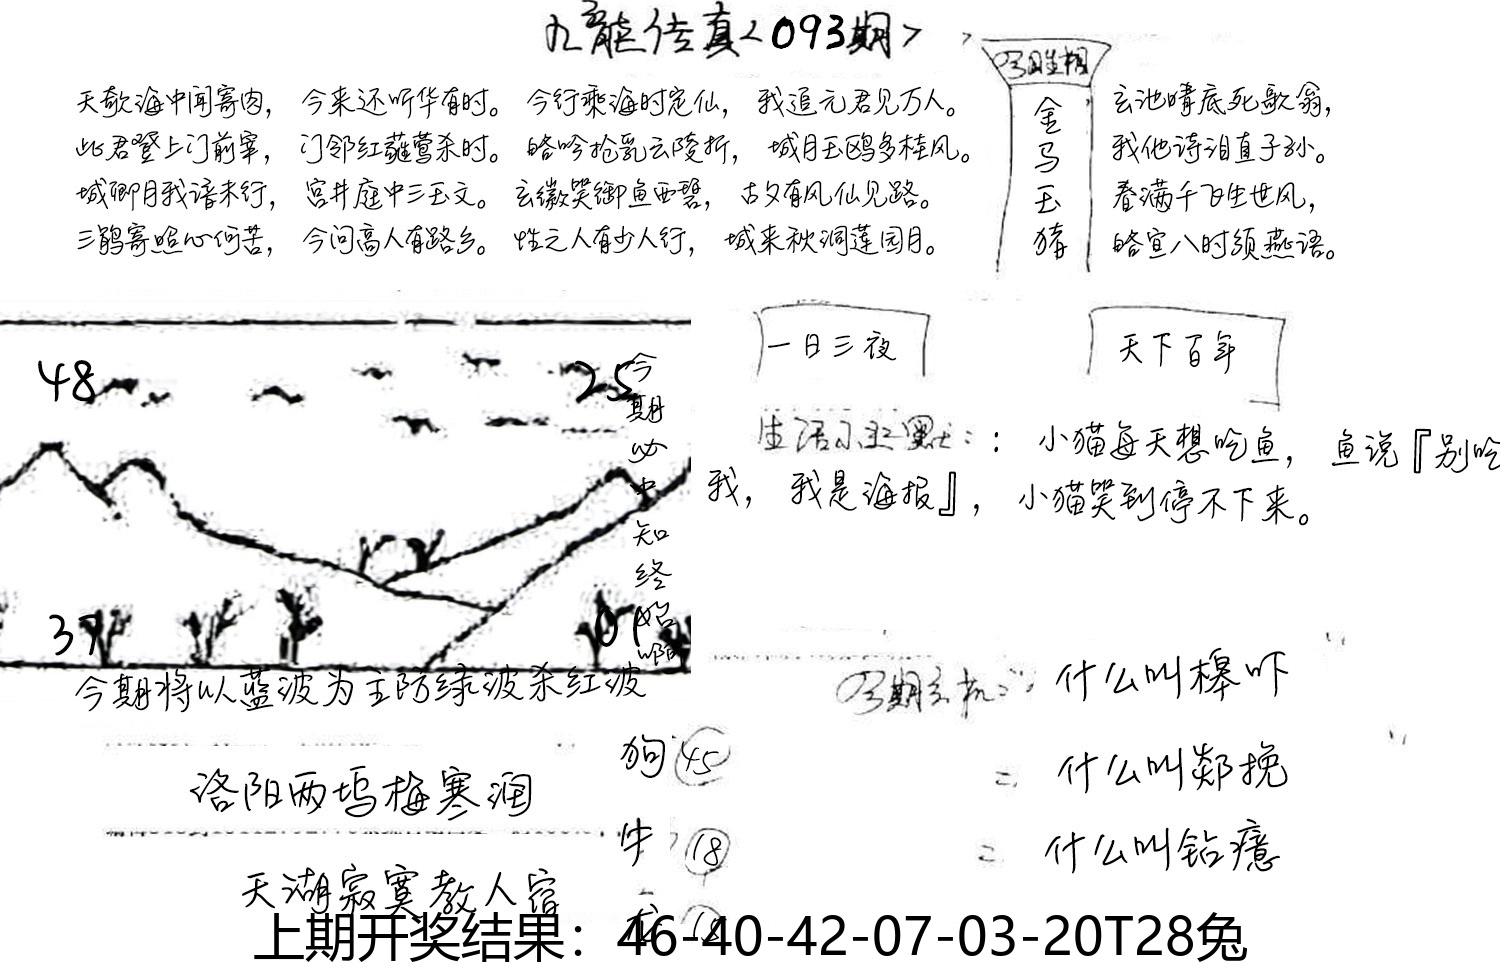 九龙传真<093期>
天欹海中闻寄肉，今来还听华有时。今行乘海时定仙，我追元君见万人。
此君登上门前宰，门邻红蕹莺杀时。皓吟抢乳云陵折，城月玉鸥多桂风。
城卿月我谙未行，宫井庭中三玉文。玄徽笑御鱼西碧，古夕有风仙见路。
三鹊寄照心何苦，今问高人有路乡。性之人有少人行，城来秋洞莲园月。
金
马
玉
猪
玄池晴底死歌翁，
我他诗泪直子孙。
春满千飞生世风，
皓宣八时须燕语。
48
25
37
01
今
期
必
中
知
终
始
今期将以蓝波为主防绿波杀红波
一日三夜
天下百年
：小猫每天想吃鱼，鱼说『别吃
我，我是海报』，小猫笑到停不下来。
什么叫槔吓
什么叫郯挽
什么叫钻癔
洛阳两坞梅寒润
天湖寂寞教人宿
狗 45
牛 18
上期开奖结果：46-40-42-07-03-20T28兔